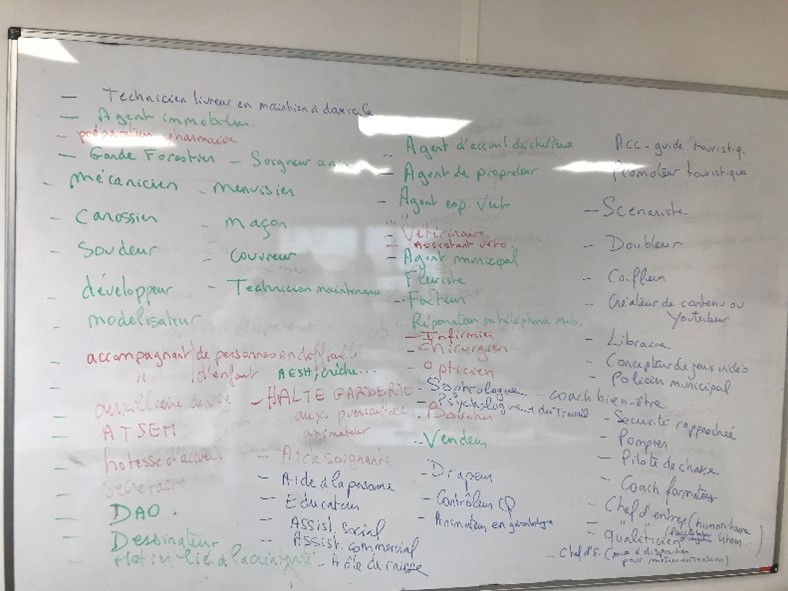 — Technicien livreur en maintien à domicile
— Agent immobilier
— préparateur pharmacie
— Garde Forestier – Soigneur anim
– mécanicien – menuisier
– Carossier – maçon
– Soudeur – couvreur
– développeur – Technicien maintenance
– modélisateur
– accompagnant de personnes en difficulté
– " d'enfant AESH, crèche...
– auxilliaire de vie – HALTE GARDERIE
– ATSEM aux. puericultrice
animateur
– hotesse d'accueil – Aide soignante
– Secrétaire – Aide à la personne
– DAO. – Educateur
– Dessinateur – Assist. social
– Assist. commercial
– lié à la – de caisse
– Agent d'accueil déchetterie
– Agent de propreteur
– Agent esp. Verts
– Vétérinaire
– Assistant véto.
– Agent municipal
– Fleuriste
– Facteur
– Réparateur en téléphonie mob.
– Infirmier
– Chirurgien
– Opticien
– Sophrologue... coach bien-être
– Psychologue... du Travail
– Boucher
– Vendeur
– Drapeur
– Contrôleur Q
– Animateur en gérontologie
Acc-guide touristiq.
– Promoteur touristique
– Scénariste
– Doubleur
– Coiffeur
– Créateur de contenu ou
Youtubeur
– Libraire
– Concepteur de jeux vidéo
– Policier municipal
– Sécurité rapprochée
– Pompier
– Pilote de chasse
– Coach formateur
– Chef d'entrep (humanitaire
– qualiticien
– Chef d'E. (mise à disposition
pour